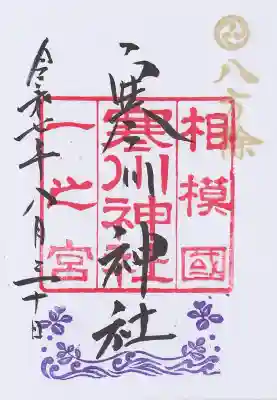 八方除
相模國
寒川神社
一之宮
寒川神社
令和七年八月三十日